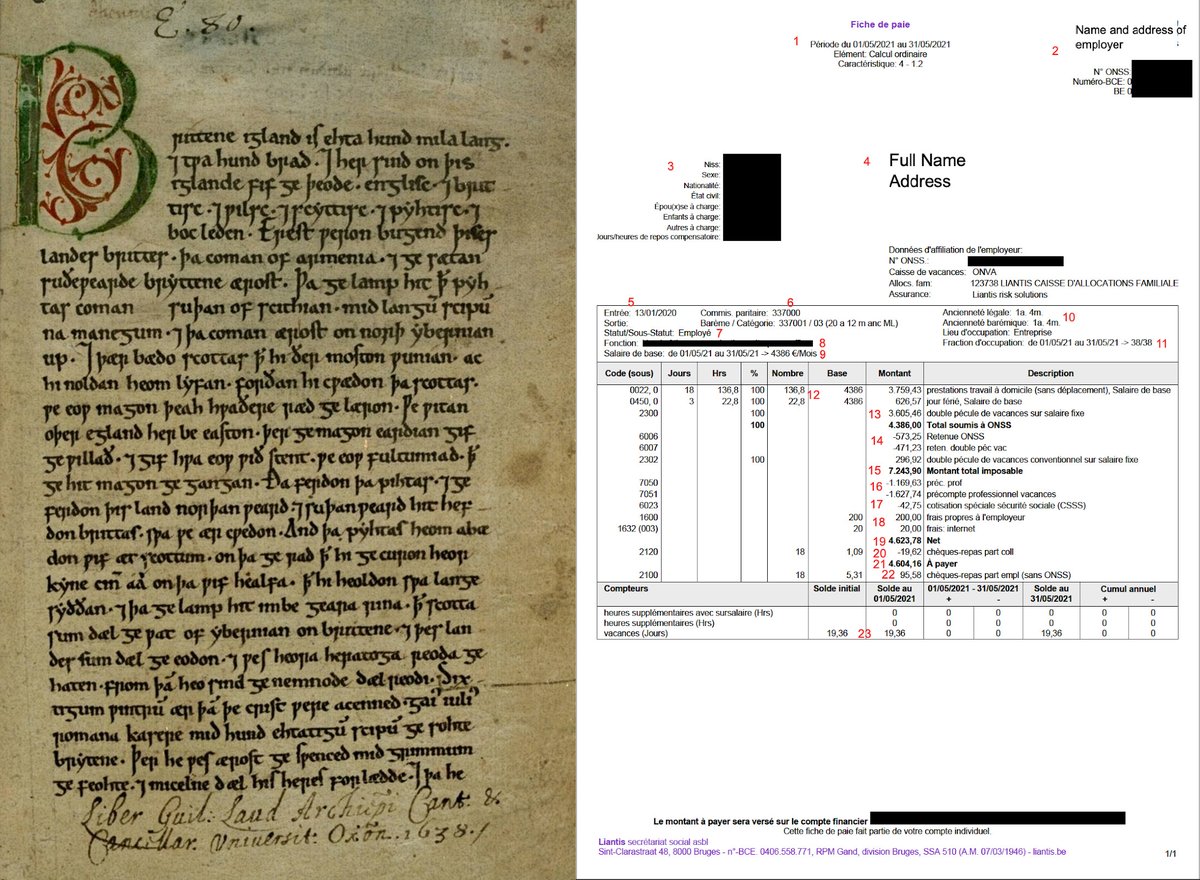 E. 80.
Brittene igland is ehta hund mila lang.
⁊ tƿa hund brad. ⁊ her sind on þis
iglande fif ge þeode. englisc. ⁊ brit
tisc. ⁊ ƿilsc. ⁊ scyttisc. ⁊ pyhtisc. ⁊
boc leden. Erest ƿeron bugend þises
landes brittes. þa coman of armenia. ⁊ ge sætan
suðeƿearde bryttene ærost. Þa ge lamp hit ꝥ pyh
tas coman suþan of scithian. mid langū scipū
na manegum. ⁊ þa coman ærost on norþ ybernian
up. ⁊ þær bædo scottas ꝥ hi ðer moston ƿunian. ac
hi noldan heom lyfan. forðan hi cƿædon þa scottas.
ƿe eoƿ magon þeah hƿaðere ræd ge læron. Ƿe ƿitan
oþer egland her be easton. þer ge magon eardian gif
ge ƿillað. ⁊ gif hƿa eoƿ ƿið stent. ƿe eoƿ fultumiað. ꝥ
ge hit magon ge gangan. Ða ferdon þa pihtas. ⁊ ge
ferdon þis land norþan ƿeard. ⁊ suþan ƿeard hit hef
don brittas. sƿa ƿe ær cƿedon. And þa pyhtas heom abæ
don ƿif æt scottum. on þa ge rad ꝥ hi ge curon heora
kyne aa on þa ƿif healfa. ꝥ hi heoldon sƿa lange
syððan. ⁊ þa ge lamp hit imbe geara rina. ꝥ scotta
sum dæl ge ƿat of ybernian on brittene. ⁊ þes lan
des sum dæl ge eodon. ⁊ ƿes heora heratoga reoda ge
haten. from þā heo sind ge nemnode dæl reodi. Six
tigum ƿintrū ær þā þe crist ƿere acenned. gai' iuli'
romana kasere mid hund ehtatigū scipū ge sohte
brytene. Þer he ƿes ærost ge spenced mid grimmum
ge feohte. ⁊ micelne dæl his heres forlædde. ⁊ þa he
Liber Guil. Laud Archiepi Cant. &
Cancellar. Universit: Oxōn. 1638.
Fiche de paie
1 Période du 01/05/2021 au 31/05/2021
Elément: Calcul ordinaire
Caractéristique: 4 - 1.2
Name and address of
2 employer
N° ONSS:
Numéro-BCE: 0
BE 0
3 Niss:
Sexe:
Nationalité:
État civil:
Épou(x)se à charge:
Enfants à charge:
Autres à charge:
Jours/heures de repos compensatoire:
4 Full Name
Address
Données d'affiliation de l'employeur:
N° ONSS.:
Caisse de vacances: ONVA
Allocs. fam: 123738 LIANTIS CAISSE D'ALLOCATIONS FAMILIALE
Assurance: Liantis risk solutions
5 6
Entrée: 13/01/2020 Commis. paritaire: 337000 Ancienneté légale: 1a. 4m.
Sortie: Barème / Catégorie: 337001 / 03 (20 a 12 m anc ML) Ancienneté barémique: 1a. 4m. 10
Statut/Sous-Statut: Employé 7 Lieu d'occupation: Entreprise
Fonction: 8 Fraction d'occupation: de 01/05/21 au 31/05/21 -> 38/38 11
Salaire de base: de 01/05/21 au 31/05/21 -> 4386 €/Mois 9
Code (sous) Jours Hrs % Nombre Base Montant Description
0022, 0 18 136,8 100 136,8 4386 3.759,43 prestations travail à domicile (sans déplacement), Salaire de base
0450, 0 3 22,8 100 22,8 12 4386 626,57 jour férié, Salaire de base
2300 100 13 3.605,46 double pécule de vacances sur salaire fixe
100 4.386,00 Total soumis à ONSS
6006 14 -573,25 Retenue ONSS
6007 -471,23 reten. double péc vac
2302 100 296,92 double pécule de vacances conventionnel sur salaire fixe
15 7.243,90 Montant total imposable
7050 16 -1.169,63 préc. prof
7051 -1.627,74 précompte professionnel vacances
6023 17 -42,75 cotisation spéciale sécurité sociale (CSSS)
1600 200 18 200,00 frais propres à l'employeur
1632 (003) 20 20,00 frais: internet
19 4.623,78 Net
2120 18 1,09 20 -19,62 chèques-repas part coll
21 4.604,16 À payer
2100 18 5,31 22 95,58 chèques-repas part empl (sans ONSS)
Compteurs Solde initial Solde au 01/05/2021 - 31/05/2021 Solde au Cumul annuel
01/05/2021 + - 31/05/2021 + -
heures supplémentaires avec sursalaire (Hrs) 0 0 0 0 0 0
heures supplémentaires (Hrs) 0 0 0 0 0 0
vacances (Jours) 19,36 23 19,36 0 0 19,36 0 0
Le montant à payer sera versé sur le compte financier
Cette fiche de paie fait partie de votre compte individuel.
Liantis secrétariat social asbl
Sint-Clarastraat 48, 8000 Bruges - n°-BCE. 0406.558.771, RPM Gand, division Bruges, SSA 510 (A.M. 07/03/1946) - liantis.be
1/1